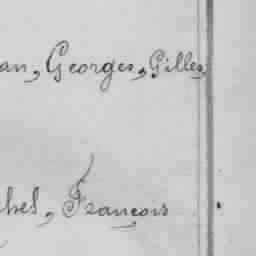 an, Georges, Gilles,
hel, François